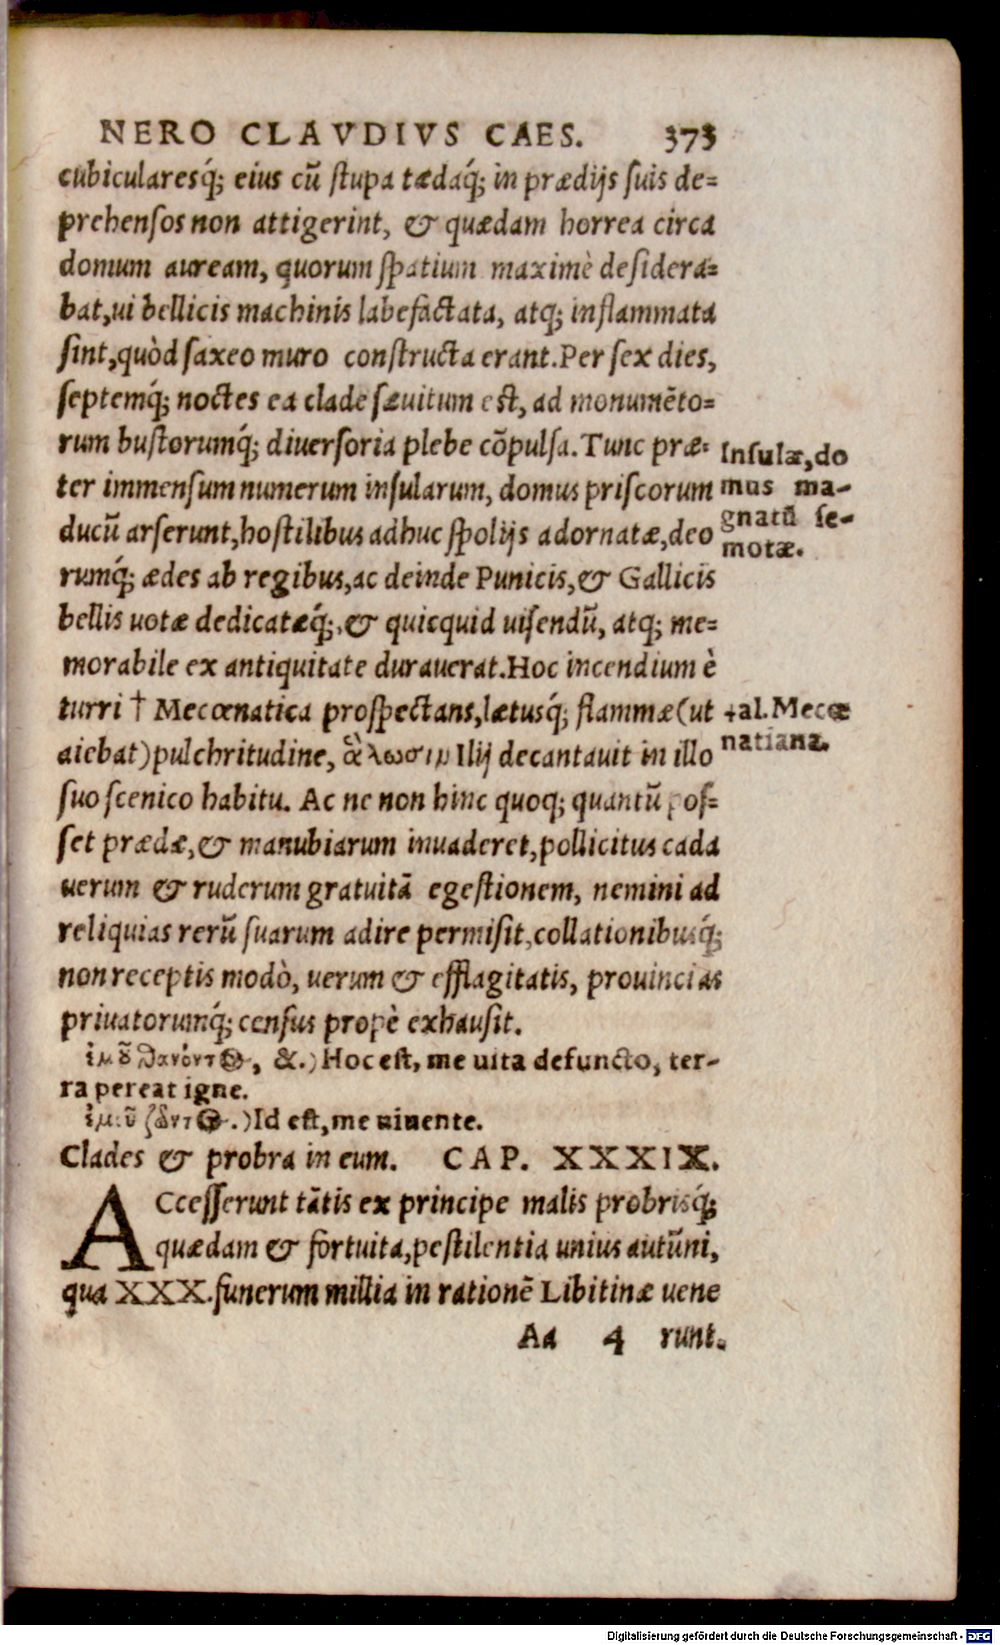 NERO CLAVDIVS CAES. 373
cubicularesq́; eius cũ stupa tædaq́; in prædijs suis de=
prehensos non attigerint, & quædam horrea circa
domum auream, quorum spatium maximè desidera=
bat, ui bellicis machinis labefactata, atq; inflammata
sint, quòd saxeo muro constructa erant. Per sex dies,
septemq́; noctes ea clade sæuitum est, ad monumẽto=
rum bustorumq́; diuersoria plebe cõpulsa. Tunc præ=
ter immensum numerum insularum, domus priscorum
ducũ arserunt, hostilibus adhuc spolijs adornatæ, deo
rumq́; ædes ab regibus, ac deinde Punicis, & Gallicis
bellis uotæ dedicatæq́;, & quicquid uisendũ, atq; me=
morabile ex antiquitate durauerat. Hoc incendium è
turri † Mecœnatica prospectans, lætusq́; flammæ (ut
aiebat) pulchritudine, ἅλωσιν Ilij decantauit in illo
suo scenico habitu. Ac ne non hinc quoq; quantũ pos=
set prædæ, & manubiarum inuaderet, pollicitus cada
uerum & ruderum gratuitã egestionem, nemini ad
reliquias rerũ suarum adire permisit, collationibusq́;
non receptis modò, uerum & efflagitatis, prouincias
priuatorumq́; census propè exhausit.
Insulæ, do
mus ma-
gnatũ se-
motæ.
†al. Mecœ
natiana.
ἐμοῦ θανόντος, &.) Hoc est, me uita defuncto, ter-
ra pereat igne.
ἐμοῦ ζῶντος.) Id est, me uiuente.
Clades & probra in eum. CAP. XXXIX.
ACcesserunt tãtis ex principe malis probrisq́;
quædam & fortuita, pestilentia unius autũni,
qua XXX. funerum millia in rationẽ Libitinæ uene
Aa 4 runt.
Digitalisierung gefördert durch die Deutsche Forschungsgemeinschaft - DFG